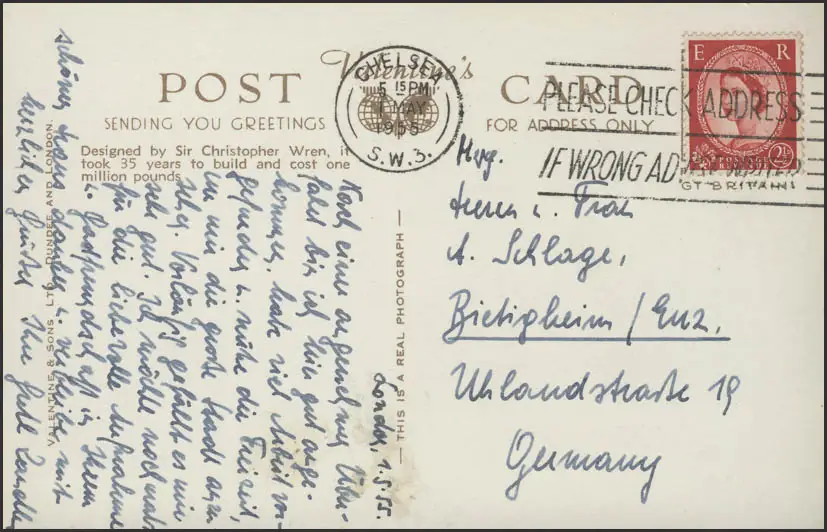 Valentine's
POST CARD
SENDING YOU GREETINGS
FOR ADDRESS ONLY
Designed by Sir Christopher Wren, it
took 35 years to build and cost one
million pounds.
CHELSEA
5 15 PM
1 MAY
1955
S.W.3.
PLEASE CHECK ADDRESS
IF WRONG ADVISE WRITER
E R
POSTAGE REVENUE
2½
GT BRITAIN
London, 1.5.55.
Nach einer angenehmen Über-
fahrt bin ich hier gut ange-
kommen, habe viel Arbeit vor-
gefunden u. nütze die Freizeit,
um mir die große Stadt anzu-
sehen. Vorläufig gefällt es mir
sehr gut. Ich möchte nochmals
für die liebevolle Aufnahme
u. Gastfreundschaft in Ihrem
schönen Haus danken u. verbleibe mit
herzlichen Grüßen Ihre
VALENTINE & SONS LTD. DUNDEE AND LONDON.
— THIS IS A REAL PHOTOGRAPH —
Herrn u. Frau
A. Schlage,
Bietigheim / Enz.
Uhlandstraße 19
Germany